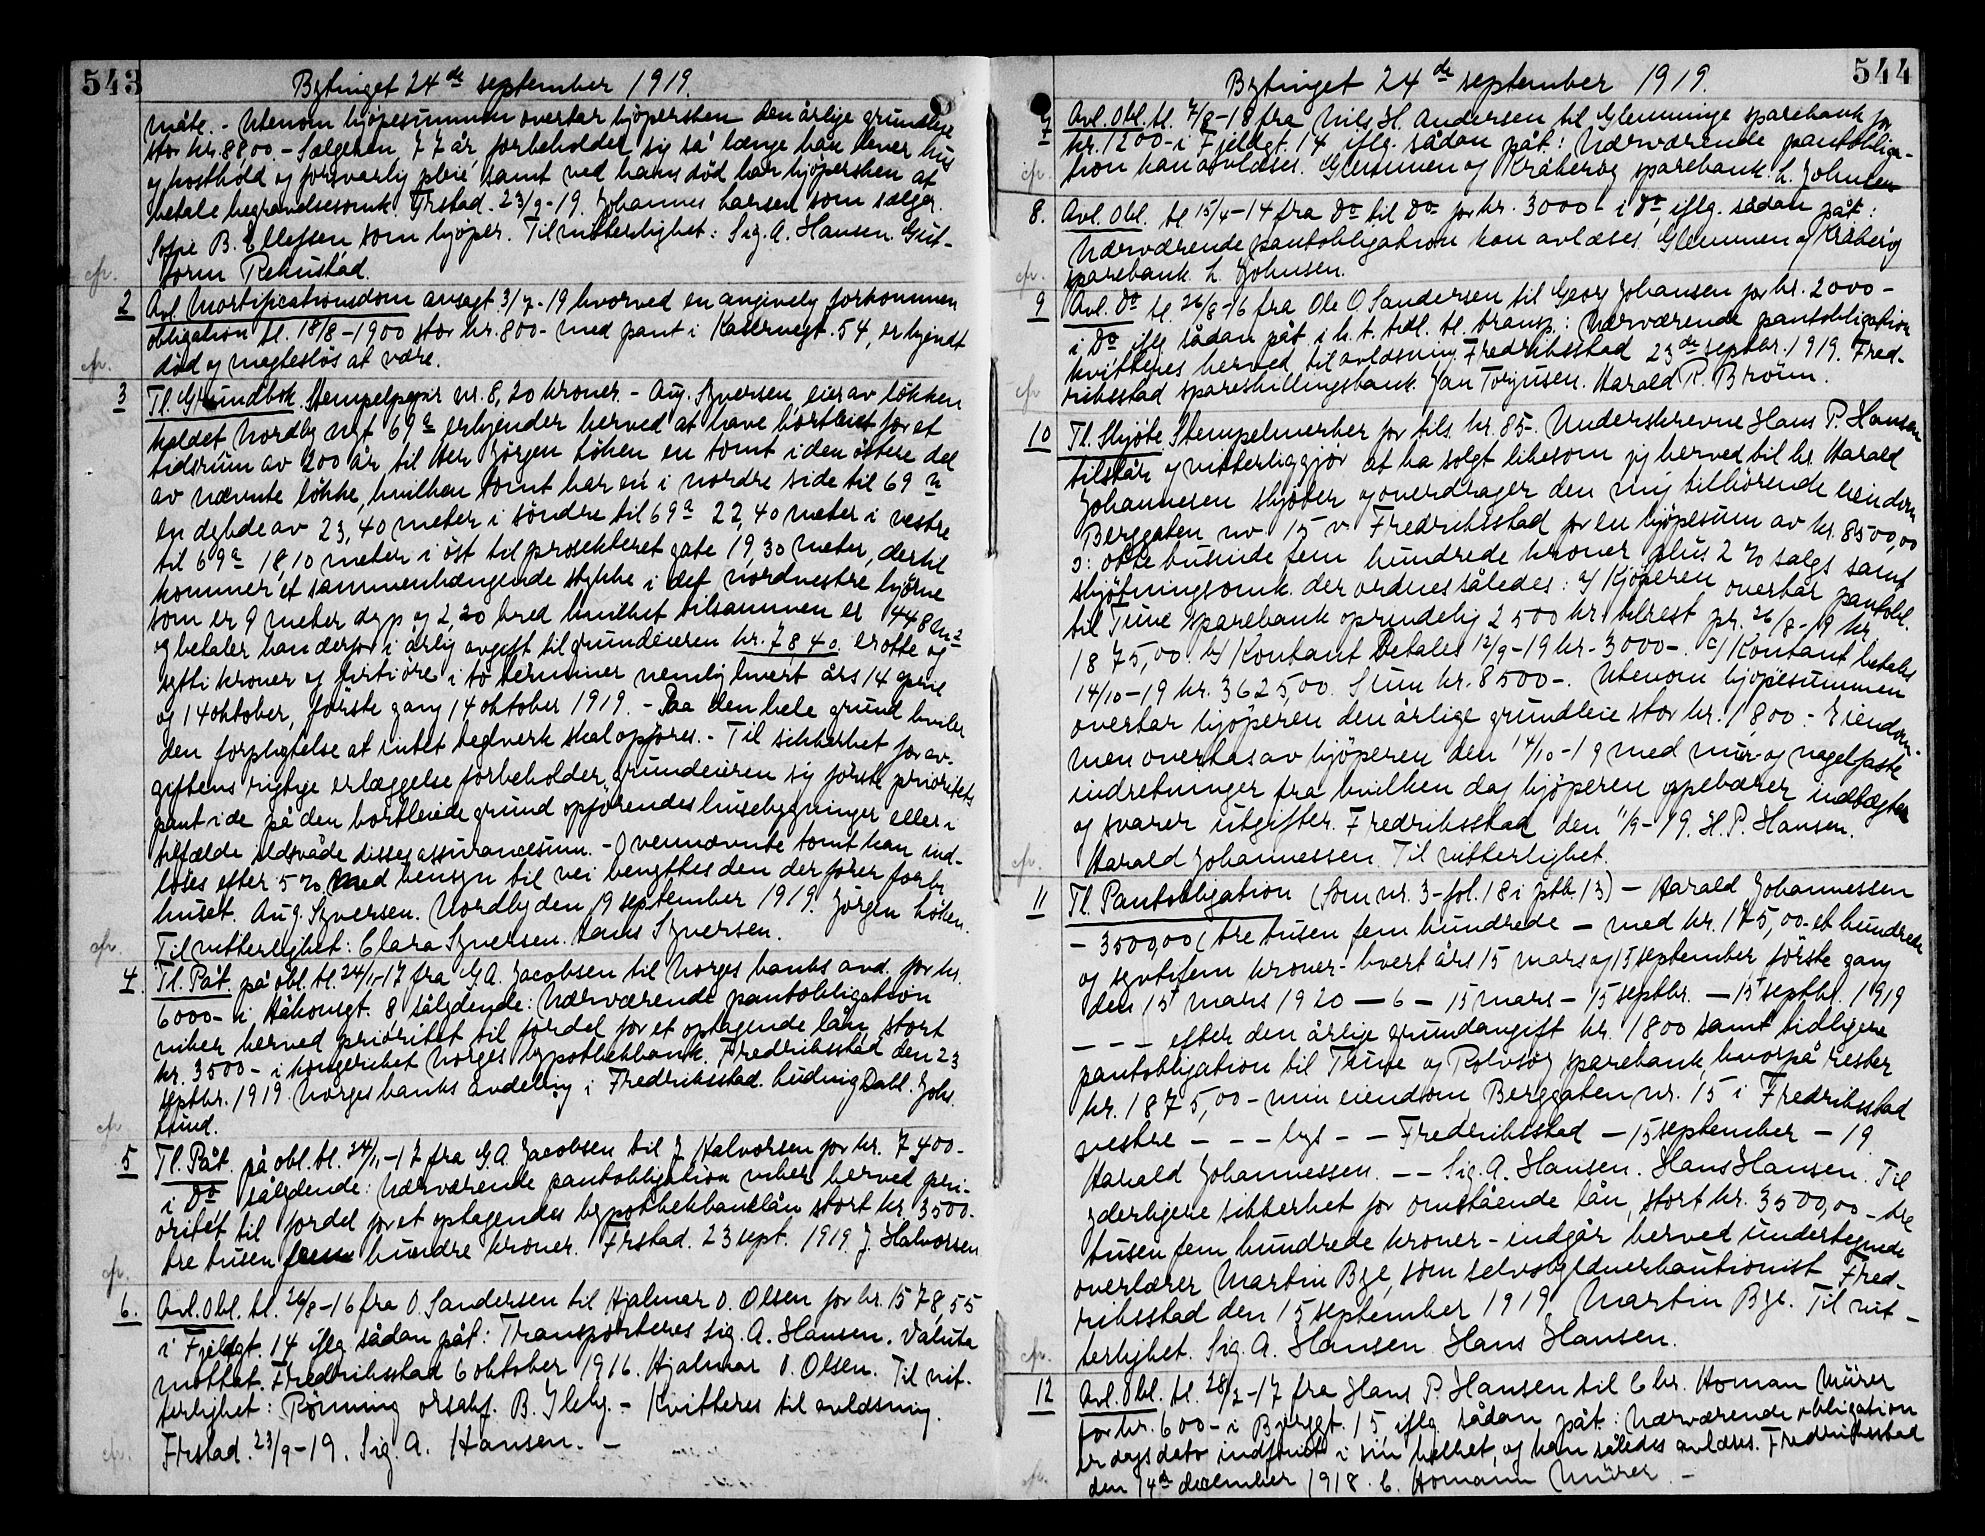 543
Bytinget 24de september 1919.
måte. - Utenom kjöpesummen overtar kjöpersken den årlige grundleie
stor kr. 88 00. - Sælgeren 77 år forbeholder sig så længe han lever hus
og kosthold og forsvarlig pleie samt ved hans död har kjöpersken at
betale begravelsesomk. Frstad. 23/9-19. Johannes Larsen som sælger.
B. Ellefsen som kjöper. Til vitterlighet: Sig. A. Hansen. Gut-
torm Rekustad.
cfr.
2 Avl. Mortifikationsdom avsagt 3/7-19 hvorved en angivelig forkommen
obligation tl. 18/8-1900 stor kr. 800- med pant i Kasernegt. 54, er kjendt
död og magteslös at være.
cfr.
3 Tl. Grundbok. Stempelpapir nr. 8, 20 kroner. - Aug. Syversen, eier av løkken
kaldet Nordby ngt 69a erkjender herved at have bortleiet for et
tidsrum av 200 år, til Herr Jörgen Löken en tomt i den östere del
av nævnte løkke, hvilken tomt har en i nordre side til 69
en dybde av 23,40 meter i söndre til 69a 22,40 meter i vestre
til 69a 18,10 meter i öst til prosekteret gate 19,30 meter, dertil
kommer et sammenhængende stykke i det nordvestre hjörne
som er 9 meter dyp og 2,20 bred hvilket tilsammen er 448 m2
og betaler han derfor i årlig avgift til grundeieren kr. 78 40. er otte og
sytti kroner og firti öre i to terminer nemlig hvert års 14 april
og 14 oktober, förste gang 14 oktober 1919. - Paa den hele grund hviler
den forpligtelse at intet bedverk skal opföres. - Til sikkerhet for av-
giftens rigtige erlæggelse forbeholder grundeieren sig förste prioritets
pant i de på den bortleiede grund opförendes husebygninger eller i
tilfælde ildsvåde disses assurancesum. - Ovennævnte tomt kan ind-
löses efter 5 % Med hensyn til vei benyttes den der förer forbi
huset. Aug. Syversen. Nordby den 19 september 1919. Jörgen Löken.
Til vitterlighet: Clara Syversen. Hans Syversen.
cfr.
4. Tl. Påt. på obl. tl. 24/11-17 fra G.A. Jacobsen til Norges banks avd. for kr.
6000- i Håkonsgt. 8 sålydende: Nærværende pantobligation
viker herved prioritet til fordel for et optagende lån stort
kr. 3500- i kongeriket Norges hypothekbank. Fredriksstad den 23
septbr. 1919. Norges banks avdeling i Fredriksstad. Ludvig Dahl. Johs.
Lund.
cfr.
5 Tl. Påt. på obl. tl. 24/11-17 fra G.A. Jacobsen til J. Halvorsen for kr. 7400-
i do sålydende: Nærværende pantobligation viker herved pri-
oritet til fordel for et optagendes hypothekbanklån stort kr. 3500-
tre tusen fem hundre kroner. Frstad. 23 sept. 1919 J. Halvorsen
cfr.
6. Avl. Obl. tl. 26/8-16 fra O. Sandersen til Hjalmar O. Olsen for kr. 1578,55
i Fjeldgt. 14 iflg sådan påt: Transporteres Sig. A. Hansen. Valuta
mottat. Fredriksstad 6 oktober 1916. Hjalmar O. Olsen. Til vit-
terlighet: Rönning orsakf. B. Ileby. - Kvitteres til avløsning.
Frstad. 23/9-19. Sig. A. Hansen. -
cfr.
544
Bytinget 24de september 1919.
7 Avl. Obl. tl. 7/8-18 fra Nils H. Andersen til Glemminge sparebank for
kr. 1200- i Fjeldgt. 14 iflg. sådan påt: Nærværende pantobliga-
tion kan avløses. Glemmen og Kråkerøy sparebank. L. Johnsen
cfr.
8. Avl. Obl. tl. 15/4-14 fra do til do for kr. 3000- i do iflg. sådan påt:
Nærværende pantobligation kan avløses. Glemmen og Kråkerøy
sparebank. L. Johnsen.
cfr.
9 Avl. do tl. 26/8-16 fra Ole O. Sandersen til Georg Johansen for kr. 2000-
i do iflg sådan påt i h. t. tidl. tl. transp.: Nærværende pantobligation
kvitteres herved til avløsning. Fredriksstad 23de septbr. 1919. Fred-
riksstad spareskillingsbank. Jan Torgusen. Harald R. Brönn.
cfr
10 Tl. Skjöte. Stempelmerker for tils. kr. 85-. Underskrevne Hans P. Hansen
tilstår og vitterliggjör at ha solgt likesom jeg herved til hr. Harald
Johannesen skjöter og overdrager den mig tilhörende eiendom
Berggaten nr 15 v. Fredriksstad for en kjöpesum av kr. 8500,00
ɔ: otte tusinde fem hundrede kroner plus 2 % salgs samt
skjötningsomk. der ordnes således: a/ Kjöperen overtar pantobl.
til Tune sparebank oprindelig 2500 kr tilrest pr. 26/8-19 kr.
1875,00. b/ Kontant betales 12/9-19 kr. 3000-. c/ Kontant betales
14/10-19 kr. 3625,00. Sum kr. 8500-. Utenom kjöpesummen
overtar kjöperen den årlige grundleie stor kr. 18,00. - Eiendom-
men overtas av kjöperen den 14/10-19 med mur- og nagelfaste
indretninger fra hvilken dag kjöperen oppebærer indtægter
og svarer utgifter. Fredriksstad den 11/9-19. H. P. Hansen.
Harald Johannessen. Til vitterlighet.
cfr.
11 Tl. Pantobligation (Som nr. 3 - fol. 18 i ptb. 13) - Harald Johannessen
- 3500,00 (tre tusen fem hundrede - med kr. 175,00 - et hundrede
og syvtifem kroner - hvert års 15 mars og 15 september förste gang
den 15 mars 1920 - 6 - 15 mars - 15 septbr. - 15 septbr. 1919
- - - efter den årlige grundavgift kr. 1800 samt tidligere
pantobligation til Tune og Rolvsöy sparebank, hvorpå rester
kr. 1875,00 - min eiendom Berggaten nr. 15 i Fredriksstad
vestre - - - lys - - Fredriksstad - 15 september - 19
Harald Johannessen. - - Sig. A. Hansen. Hans Hansen. Til
yderligere sikkerhet for omstående lån, stort kr. 3500,00 - tre
tusen fem hundrede kroner - indgår herved undertegnede
overlærer Martin Bye, som selvskyldnerkautionist. Fred-
riksstad den 15 september 1919. Martin Bye. Til vit-
terlighet. Sig. A. Hansen. Hans Hansen.
cfr.
12 Avl. Obl. tl. 28/2-17 fra Hans P. Hansen til Chr. Homan Mürer
for kr. 600- i Berggt. 15 iflg. sådan påt: Nærværende obligation
er dags dato indfriet i sin helhet, og kan således avløses. Fredriksstad
den 14de december 1918. C. Homann Mürer. -
cfr.